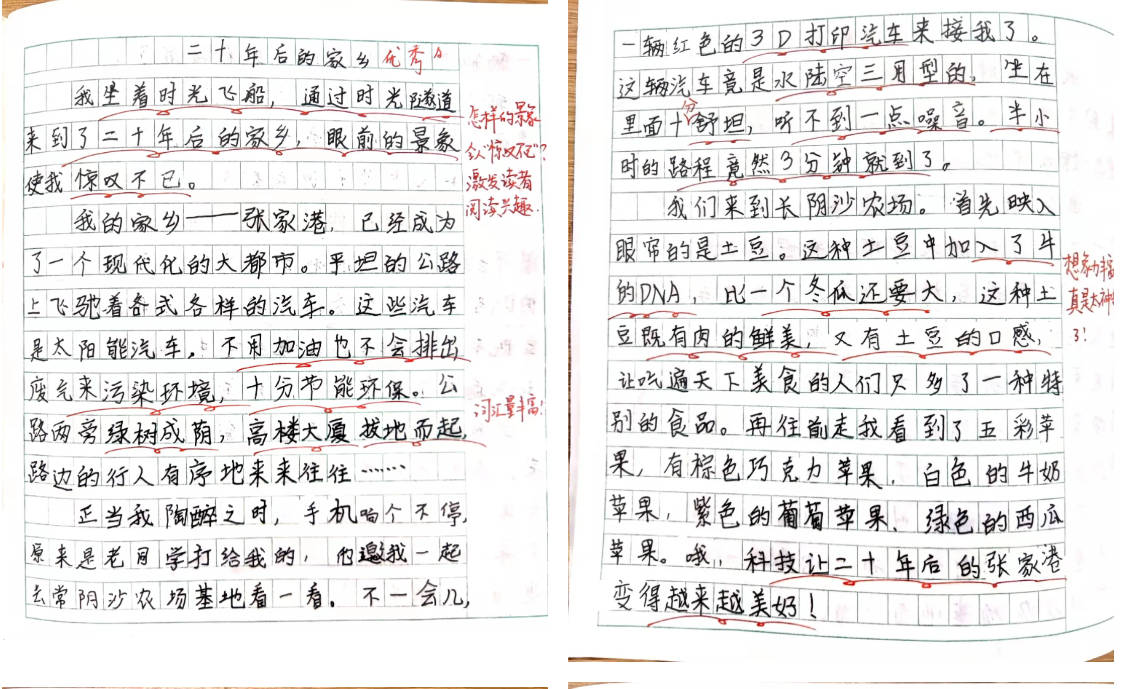 二十年后的家乡 优秀
我坐着时光飞船，通过时光隧道
来到了二十年后的家乡，眼前的景象
使我惊叹不已。
怎样的景象
令人“惊叹不已”？
激发读者
阅读兴趣。
我的家乡——张家港，已经成为
了一个现代化的大都市。平坦的公路
上飞驰着各式各样的汽车。这些汽车
是太阳能汽车，不用加油也不会排出
废气来污染环境，十分节能环保。公
路两旁绿树成荫，高楼大厦拔地而起，
路边的行人有序地来来往往……
词汇量丰富！
正当我陶醉之时，手机响个不停，
原来是老同学打给我的，他邀我一起
去常阴沙农场基地看一看。不一会儿，
一辆红色的3D打印汽车来接我了。
这辆汽车竟是水陆空三用型的，坐在
里面十分舒坦，听不到一点噪音。半小
时的路程竟然3分钟就到了。
我们来到长阴沙农场。首先映入
眼帘的是土豆。这种土豆中加入了牛
的DNA，比一个冬瓜还要大，这种土
豆既有肉的鲜美，又有土豆的口感，
让吃遍天下美食的人们又多了一种特
别的食品。再往前走我看到了五彩苹
果，有棕色巧克力苹果、白色的牛奶
苹果，紫色的葡萄苹果、绿色的西瓜
苹果。哦，科技让二十年后的张家港
变得越来越美好！
想象力丰富
真是太神
了！